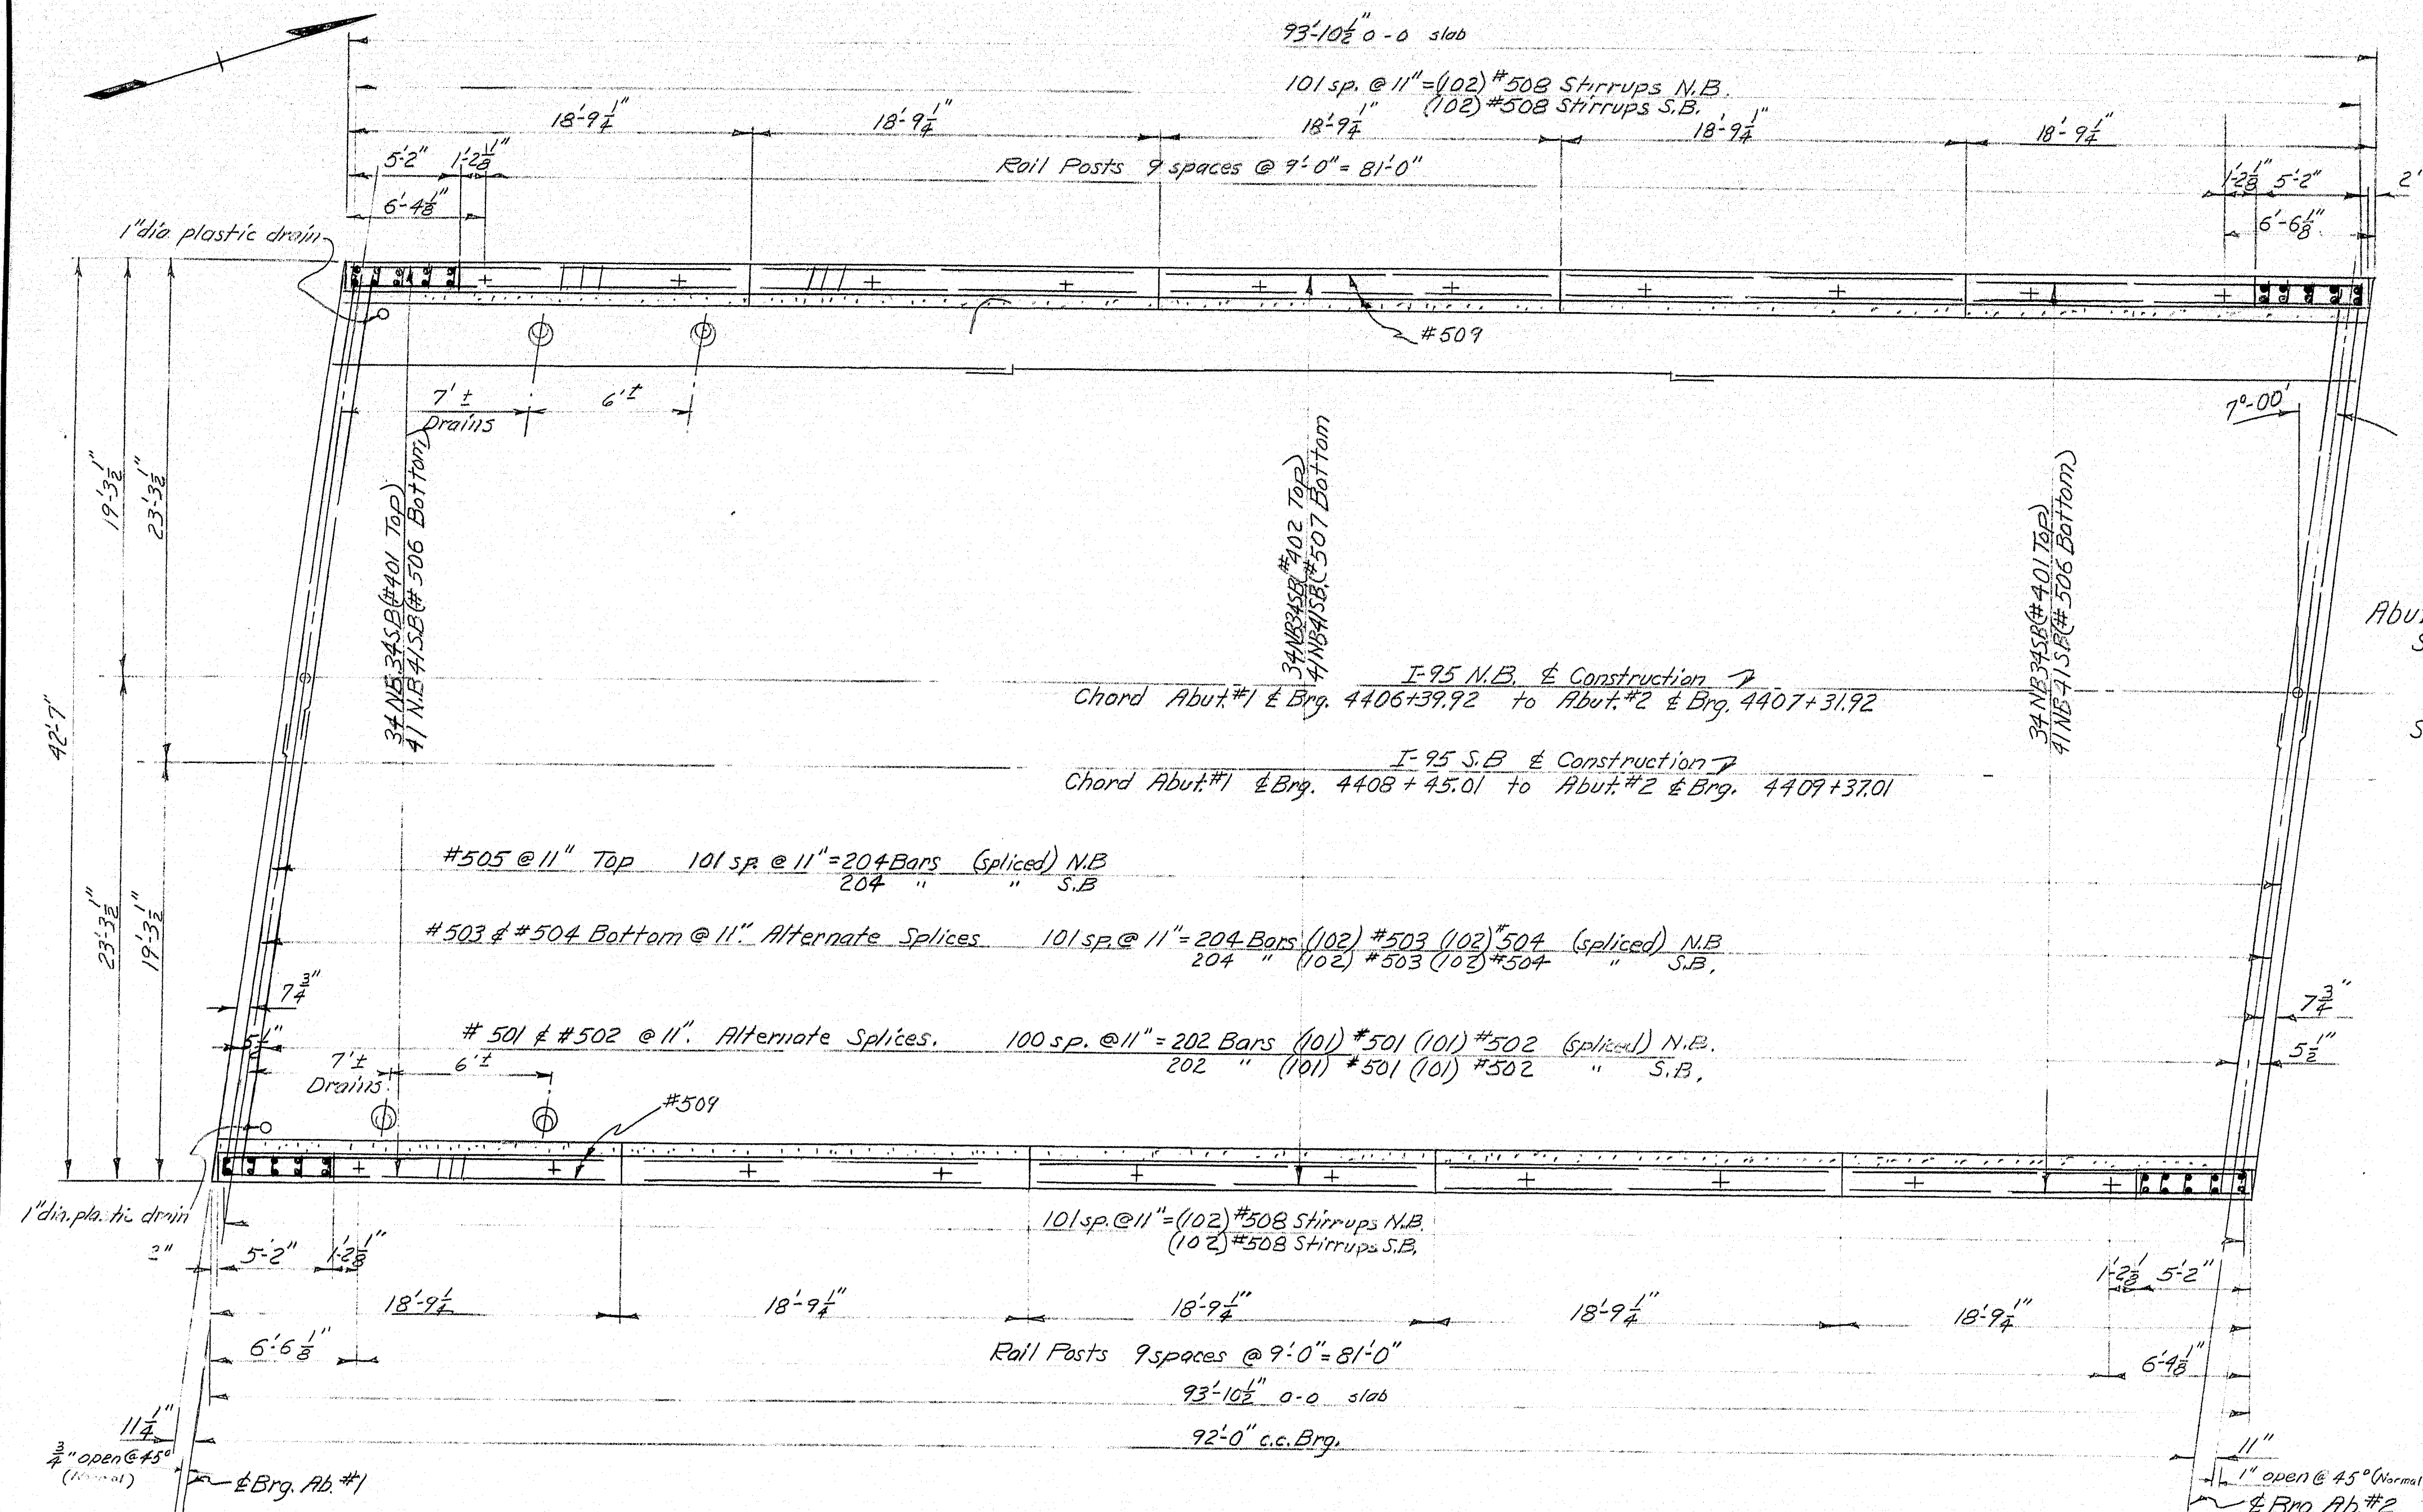 93'-10 1/2" o-o slab
101 sp. @ 11" = (102) #508 Stirrups N.B.
(102) #508 Stirrups S.B.
18'-9 1/4"
18'-9 1/4"
18'-9 1/4"
18'-9 1/4"
18'-9 1/4"
5'-2"
1'-2 1/8"
Rail Posts 9 spaces @ 9'-0" = 81'-0"
1'-2 1/8"
5'-2"
2"
6'-4 1/8"
6'-6 1/8"
1" dia. plastic drain
#509
7' ±
Drains
6' ±
7°-00'
19'-3 1/2"
23'-3 1/2"
34 NB 34 SB (#401 Top)
41 N.B 41 SB (#506 Bottom)
34 NB 34 SB (#402 Top)
41 NB 41 SB (#507 Bottom
34 NB 34 SB (#401 Top)
41 NB 41 SB (#506 Bottom)
Abut
S
S
42'-7"
I-95 N.B. ℄ Construction
Chord Abut. #1 ℄ Brg. 4406+39.92 to Abut. #2 ℄ Brg. 4407+31.92
I-95 S.B ℄ Construction
Chord Abut. #1 ℄ Brg. 4408+45.01 to Abut. #2 ℄ Brg. 4409+37.01
#505 @ 11" Top 101 sp. @ 11" = 204 Bars (spliced) N.B
204 " " S.B
23'-3 1/2"
19'-3 1/2"
#503 & #504 Bottom @ 11". Alternate Splices 101 sp. @ 11" = 204 Bars (102) #503 (102) #504 (spliced) N.B
204 " (102) #503 (102) #504 " S.B.
7 3/4"
7 3/4"
#501 & #502 @ 11". Alternate Splices. 100 sp. @ 11" = 202 Bars (101) #501 (101) #502 (spliced) N.B.
202 " (101) #501 (101) #502 " S.B.
5 1/2"
5 1/2"
7' ±
Drains
6' ±
#509
1" dia. plastic drain
101 sp. @ 11" = (102) #508 Stirrups N.B.
(102) #508 Stirrups S.B.
2"
5'-2"
1'-2 1/8"
1'-2 1/8"
5'-2"
18'-9 1/4"
18'-9 1/4"
18'-9 1/4"
18'-9 1/4"
18'-9 1/4"
6'-6 1/8"
Rail Posts 9 spaces @ 9'-0" = 81'-0"
6'-4 1/8"
93'-10 1/2" o-o slab
11 1/4"
92'-0" c.c. Brg.
11"
3/4" open @ 45°
(Normal)
1" open @ 45° (Normal
℄ Brg. Ab. #1
℄ Brg. Ab. #2